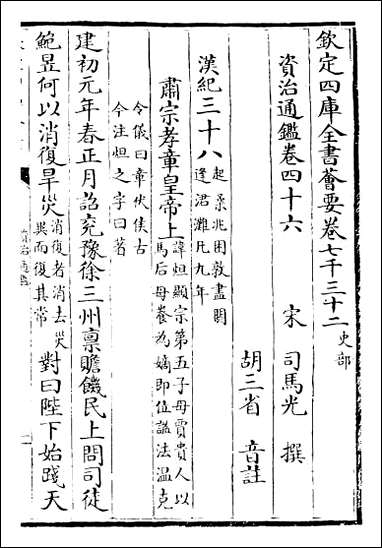 欽定四庫全書薈要卷七千三十二史部
資治通鑑卷四十六
宋 司馬光 撰
胡三省 音註
漢紀三十八起柔兆困敦盡閼
逢涒灘凡九年
肅宗孝章皇帝上諱炟顯宗第五子母賈貴人以
馬后母養為嫡即位諡法温克
令儀曰章伏侯古
今注炟之字曰著
建初元年春正月詔兖豫徐三州禀贍饑民上問司徒
鮑昱何以消復旱災消復者消去災
異而復其常對曰陛下始踐天